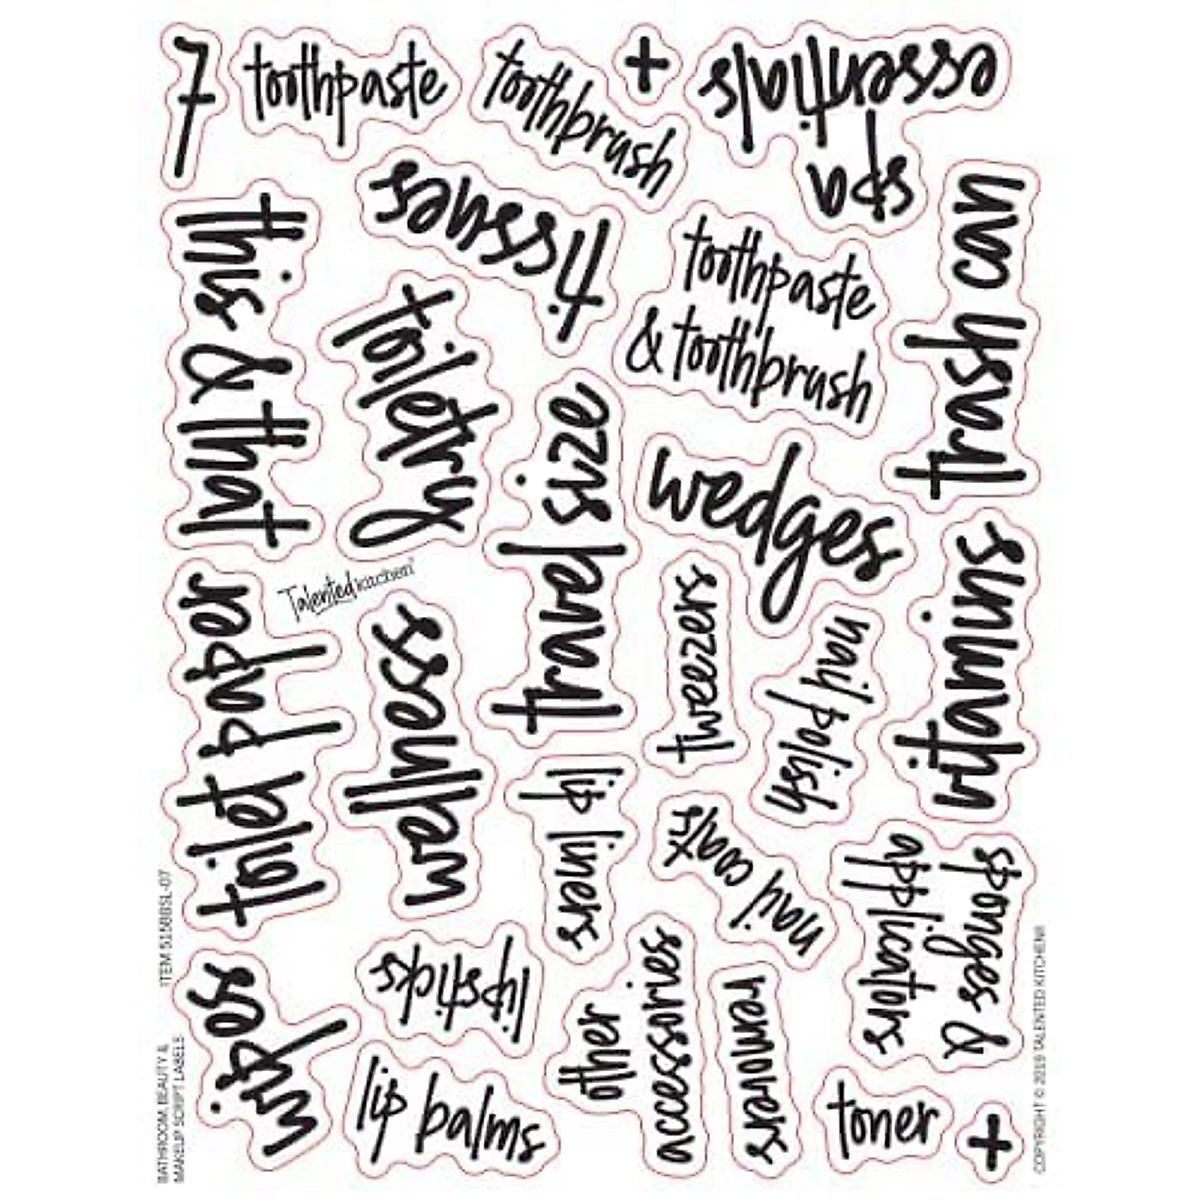 7
toothpaste
toothbrush
+
spa
essentials
tissues
this & that
toiletry
toothpaste
& toothbrush
trash can
travel size
wedges
Talented Kitchen®
toilet paper
wellness
tweezers
nail polish
vitamins
lip liners
nail coats
sponges &
applicators
wipes
lipsticks
other
accessories
removers
lip balms
toner
+
BATHROOM, BEAUTY &
MAKEUP SCRIPT LABELS
ITEM 5158BSL-07
COPYRIGHT © 2019 TALENTED KITCHEN®